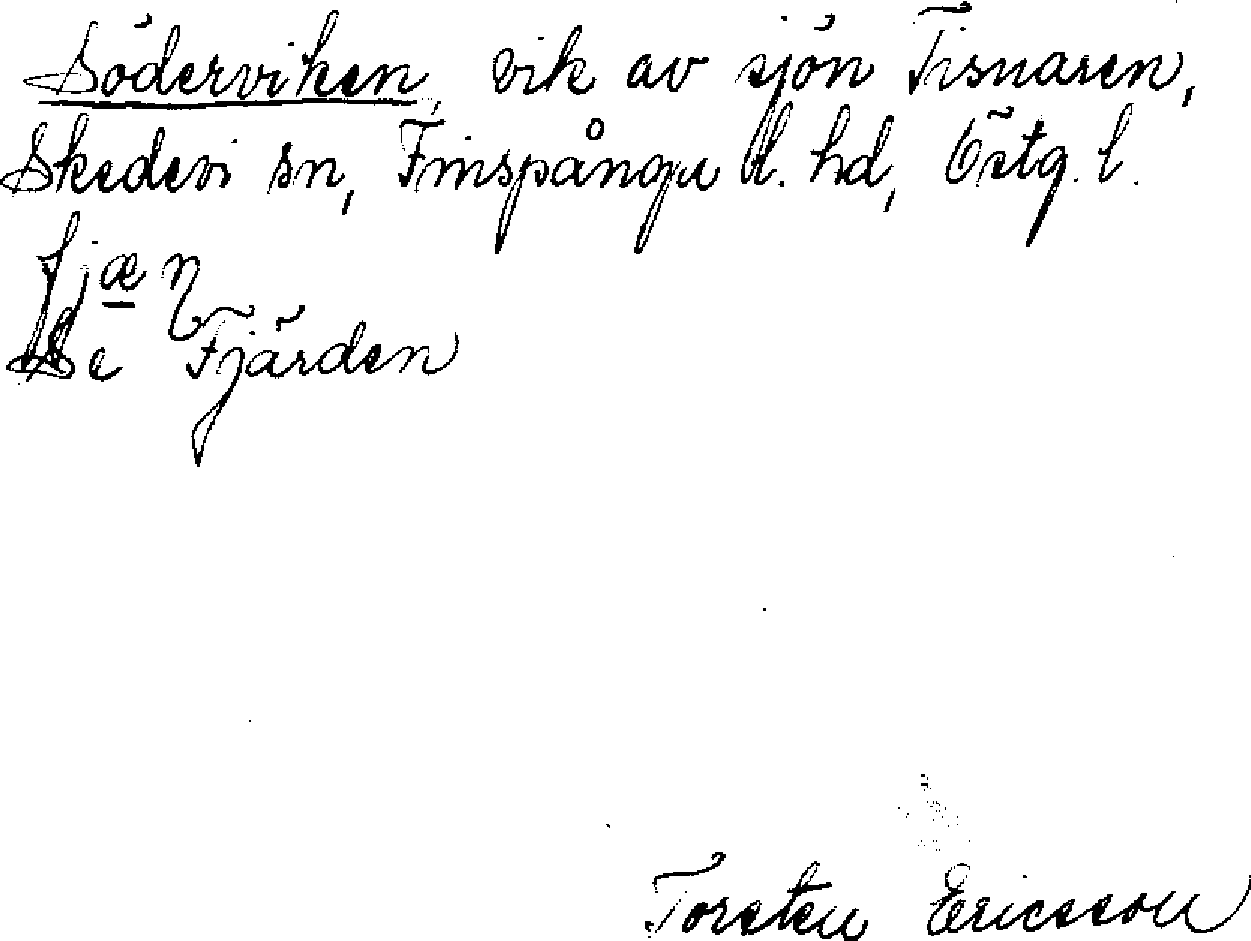 Söderviken, vik av sjön Tisnaren,
Skedevi sn, Finspånga l. hd, Östg. l.
fjæɳ
Se Fjärden
Torsten Ericsson